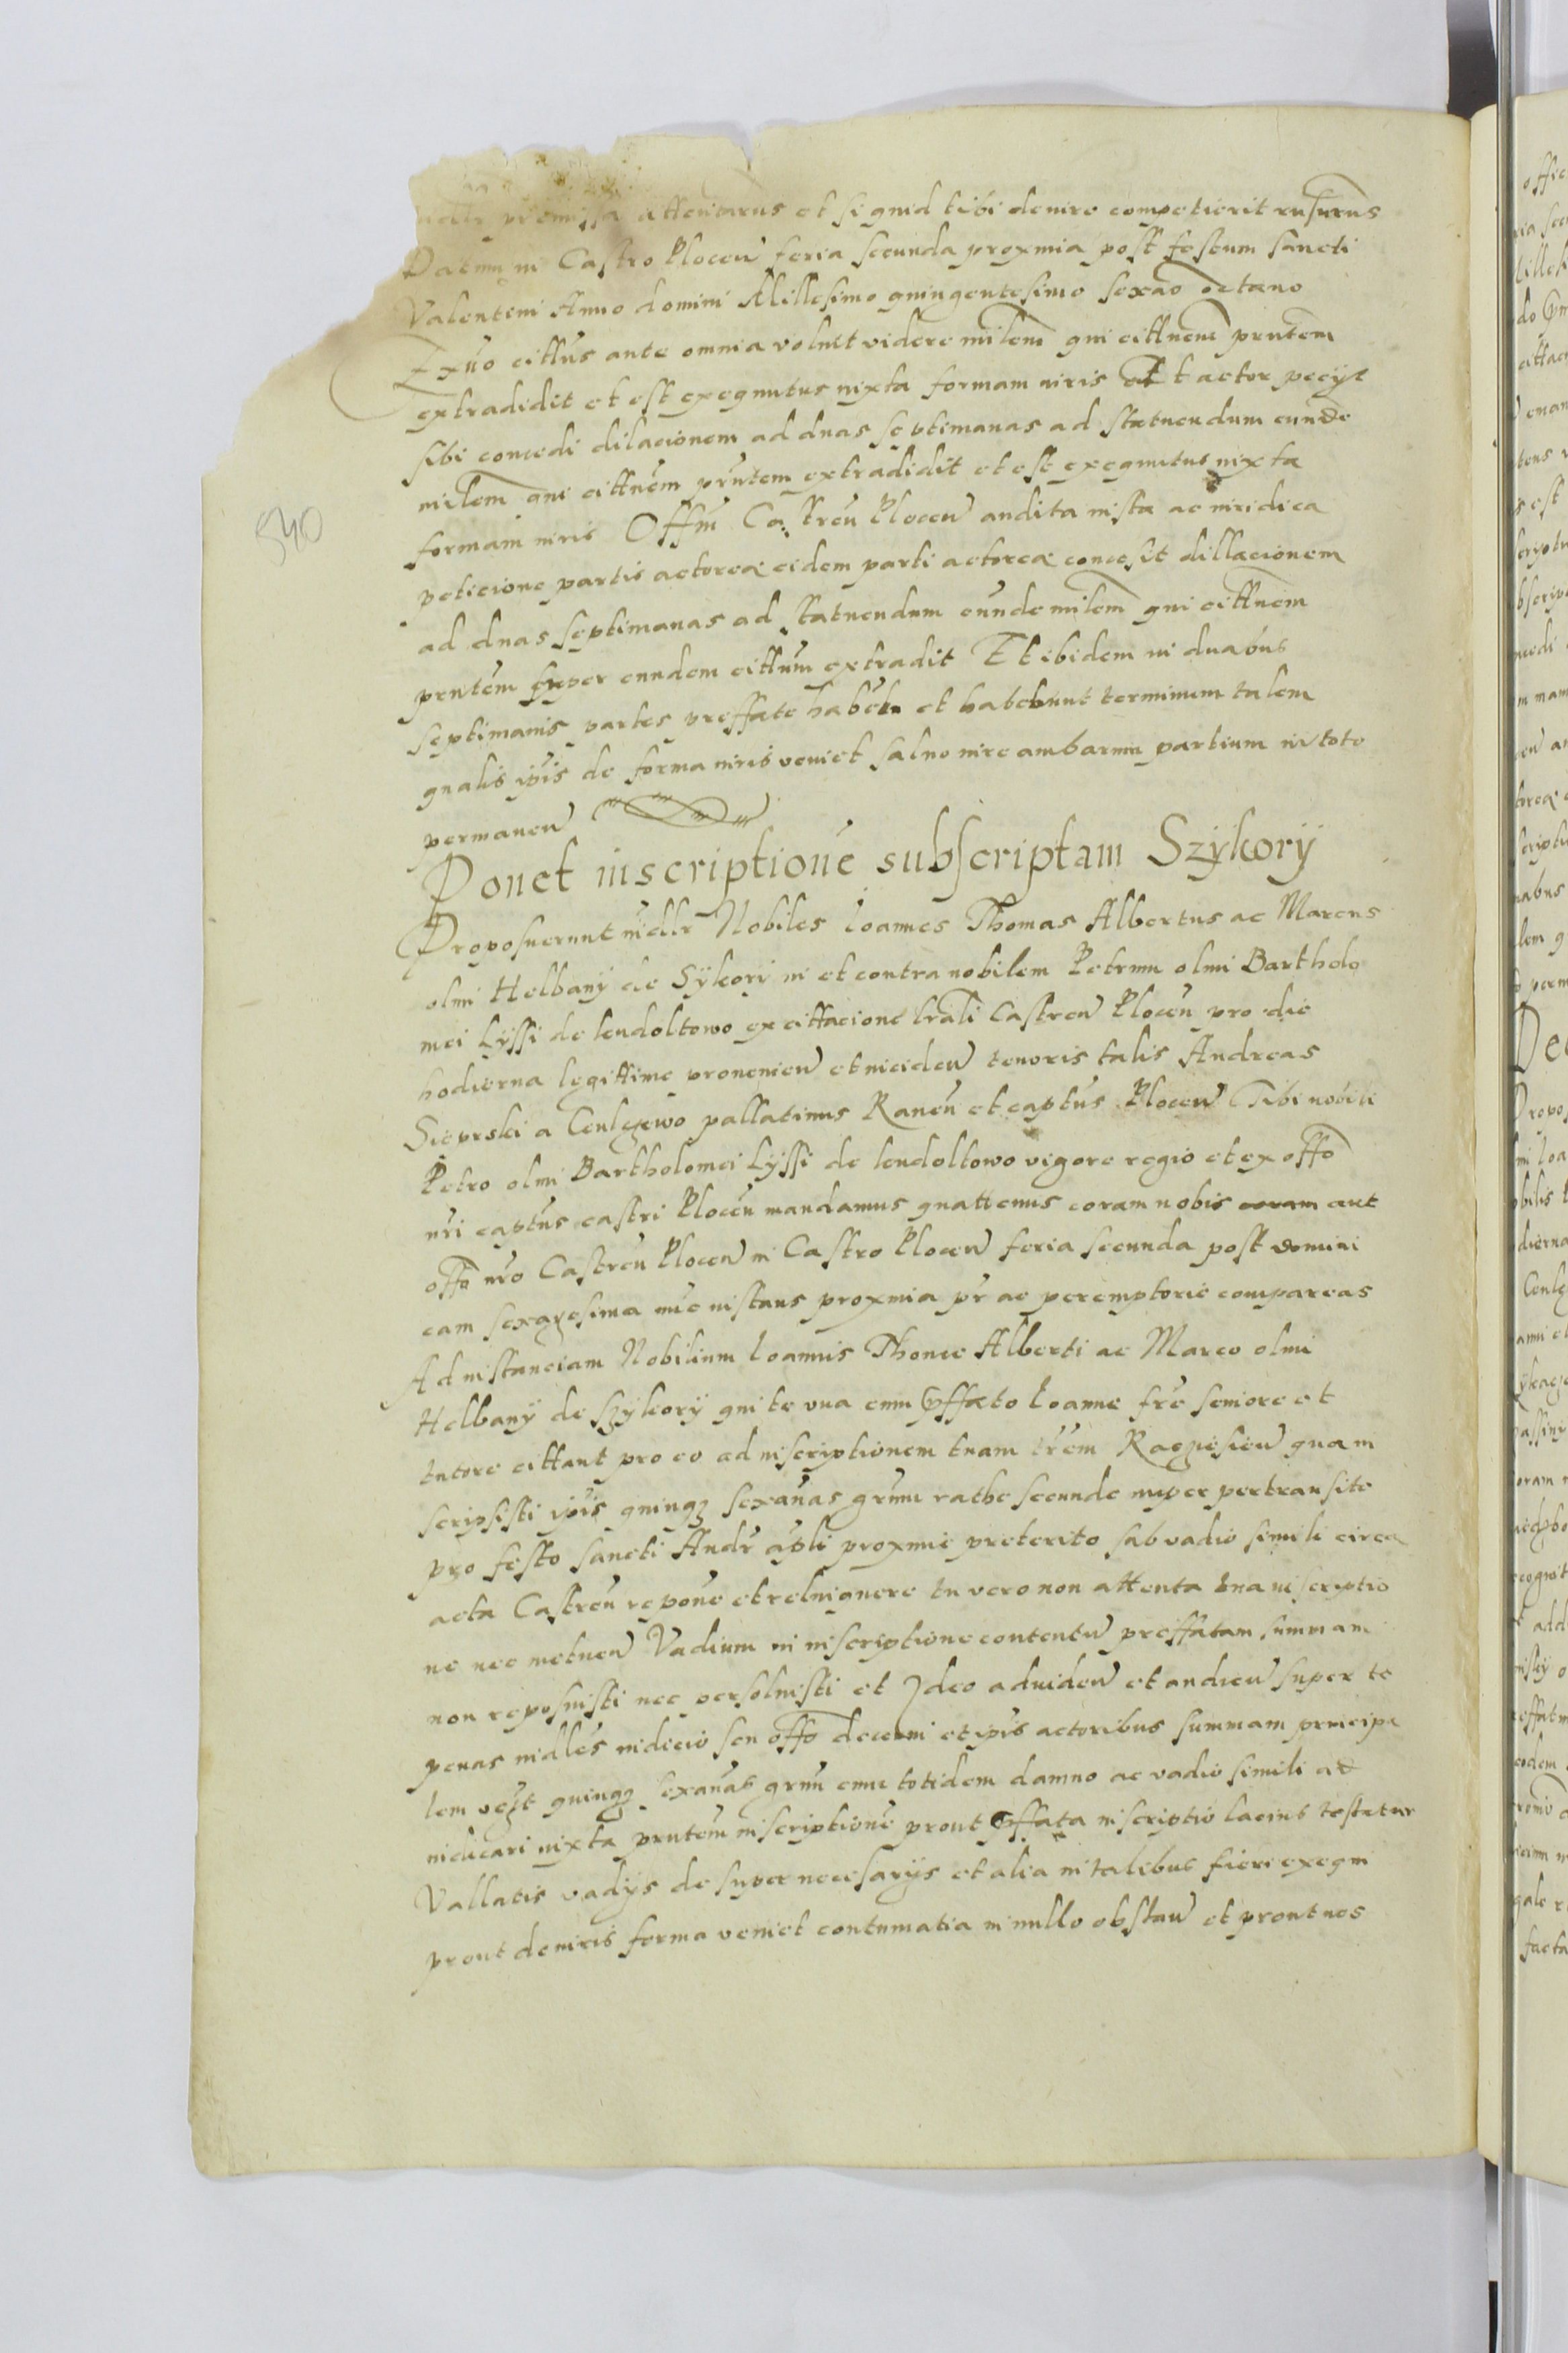 premissa attentarus et si quid tibi de iure competierit rusurus
Datum in Castro Plocen feria secunda proxima post festum sancti
Valentini Anno domini Millesimo quingentesimo sexão octavo
Ex ũo cittus ante omnia voluit videre milem qui cittnem prntem
extradidit et est exequutus iuxta formam iuris Et actor pecyt
sibi concedi dilacionem ad duas septimanas ad statuendum eunde
milem qui cittnem prntem extradidit et est exequutus iuxta
formam iuris Offm Castren Plocen audita iusta ac iuridica
peticione partis actoreæ eidem parti actoreæ concesit dillacionem
ad duas septimanas ad statuendum eunde milem qui cittnem
prntem super eundem cittum extradit Et ibidem in duabus
septimanis partes preffate habebu et habebunt terminum talem
qualis ipis de forma iuris veniet salvo iure ambarum partium in toto
permanen
Ponet inscriptione subscriptam Szÿkorÿ
Proposuerunt iudlr Nobiles Ioannes Thomas Albertus ac Marcus
olmi Helbanÿ de Sÿkorÿ in et contra nobilem Petrum olmi Bartholo
mei Lÿssi de lendoltowo ex cittacione lrali Castren Plocen pro die
hodierna legittime provenien et inciden tenoris talis Andreas
Sieprski a Czulczewo pallatinus Raven et captus Plocen Tibi nobili
Petro olmi Bartholomei Lÿssi de lendoltowo vigore regio et ex offo
nri captus castri Plocen mandamus quattenus coram nobis coram aut
offo nro Castren Plocen in Castro Plocen feria secunda post domini
cam sexagesima nuc instans proxmia pr ac peremptorie compareas
Ad instanciam Nobilium Ioannis Thome Alberti ac Marco olmi
Helbanÿ de Szÿkorÿ qui te una cum pffato Ioanne fre seniore et
tutore cittant pro eo ad inscriptionem tuam trem Raczyesien quam
scripsisti ipis quinqz sexanas grum rathe secunde nuper pertransite
pro festo sancti Andr apli proxmie preterito sub vadio simili circa
acta Castren repone et reluiquere tu vero non attenta tua inscriptio
ne nec metuen Vadium in inscriptione contentu preffatam summam
non reposuisti nec persoluisti et Ideo ad viden et audien super te
penas iudles iudicio seu offo decerni et ipis actoribus summam principa
lem vezt quinqz sexanas grum cum totidem damno ac vadio simili ad
iudicari iuxta prntem inscriptione prout pffata inscriptio lacius testatur
Vallatis vadÿs de super necesarÿs et alia in talibus fieri exequi
prout de iuris forma veniet contumatia in nullo obstan et prout nos
540